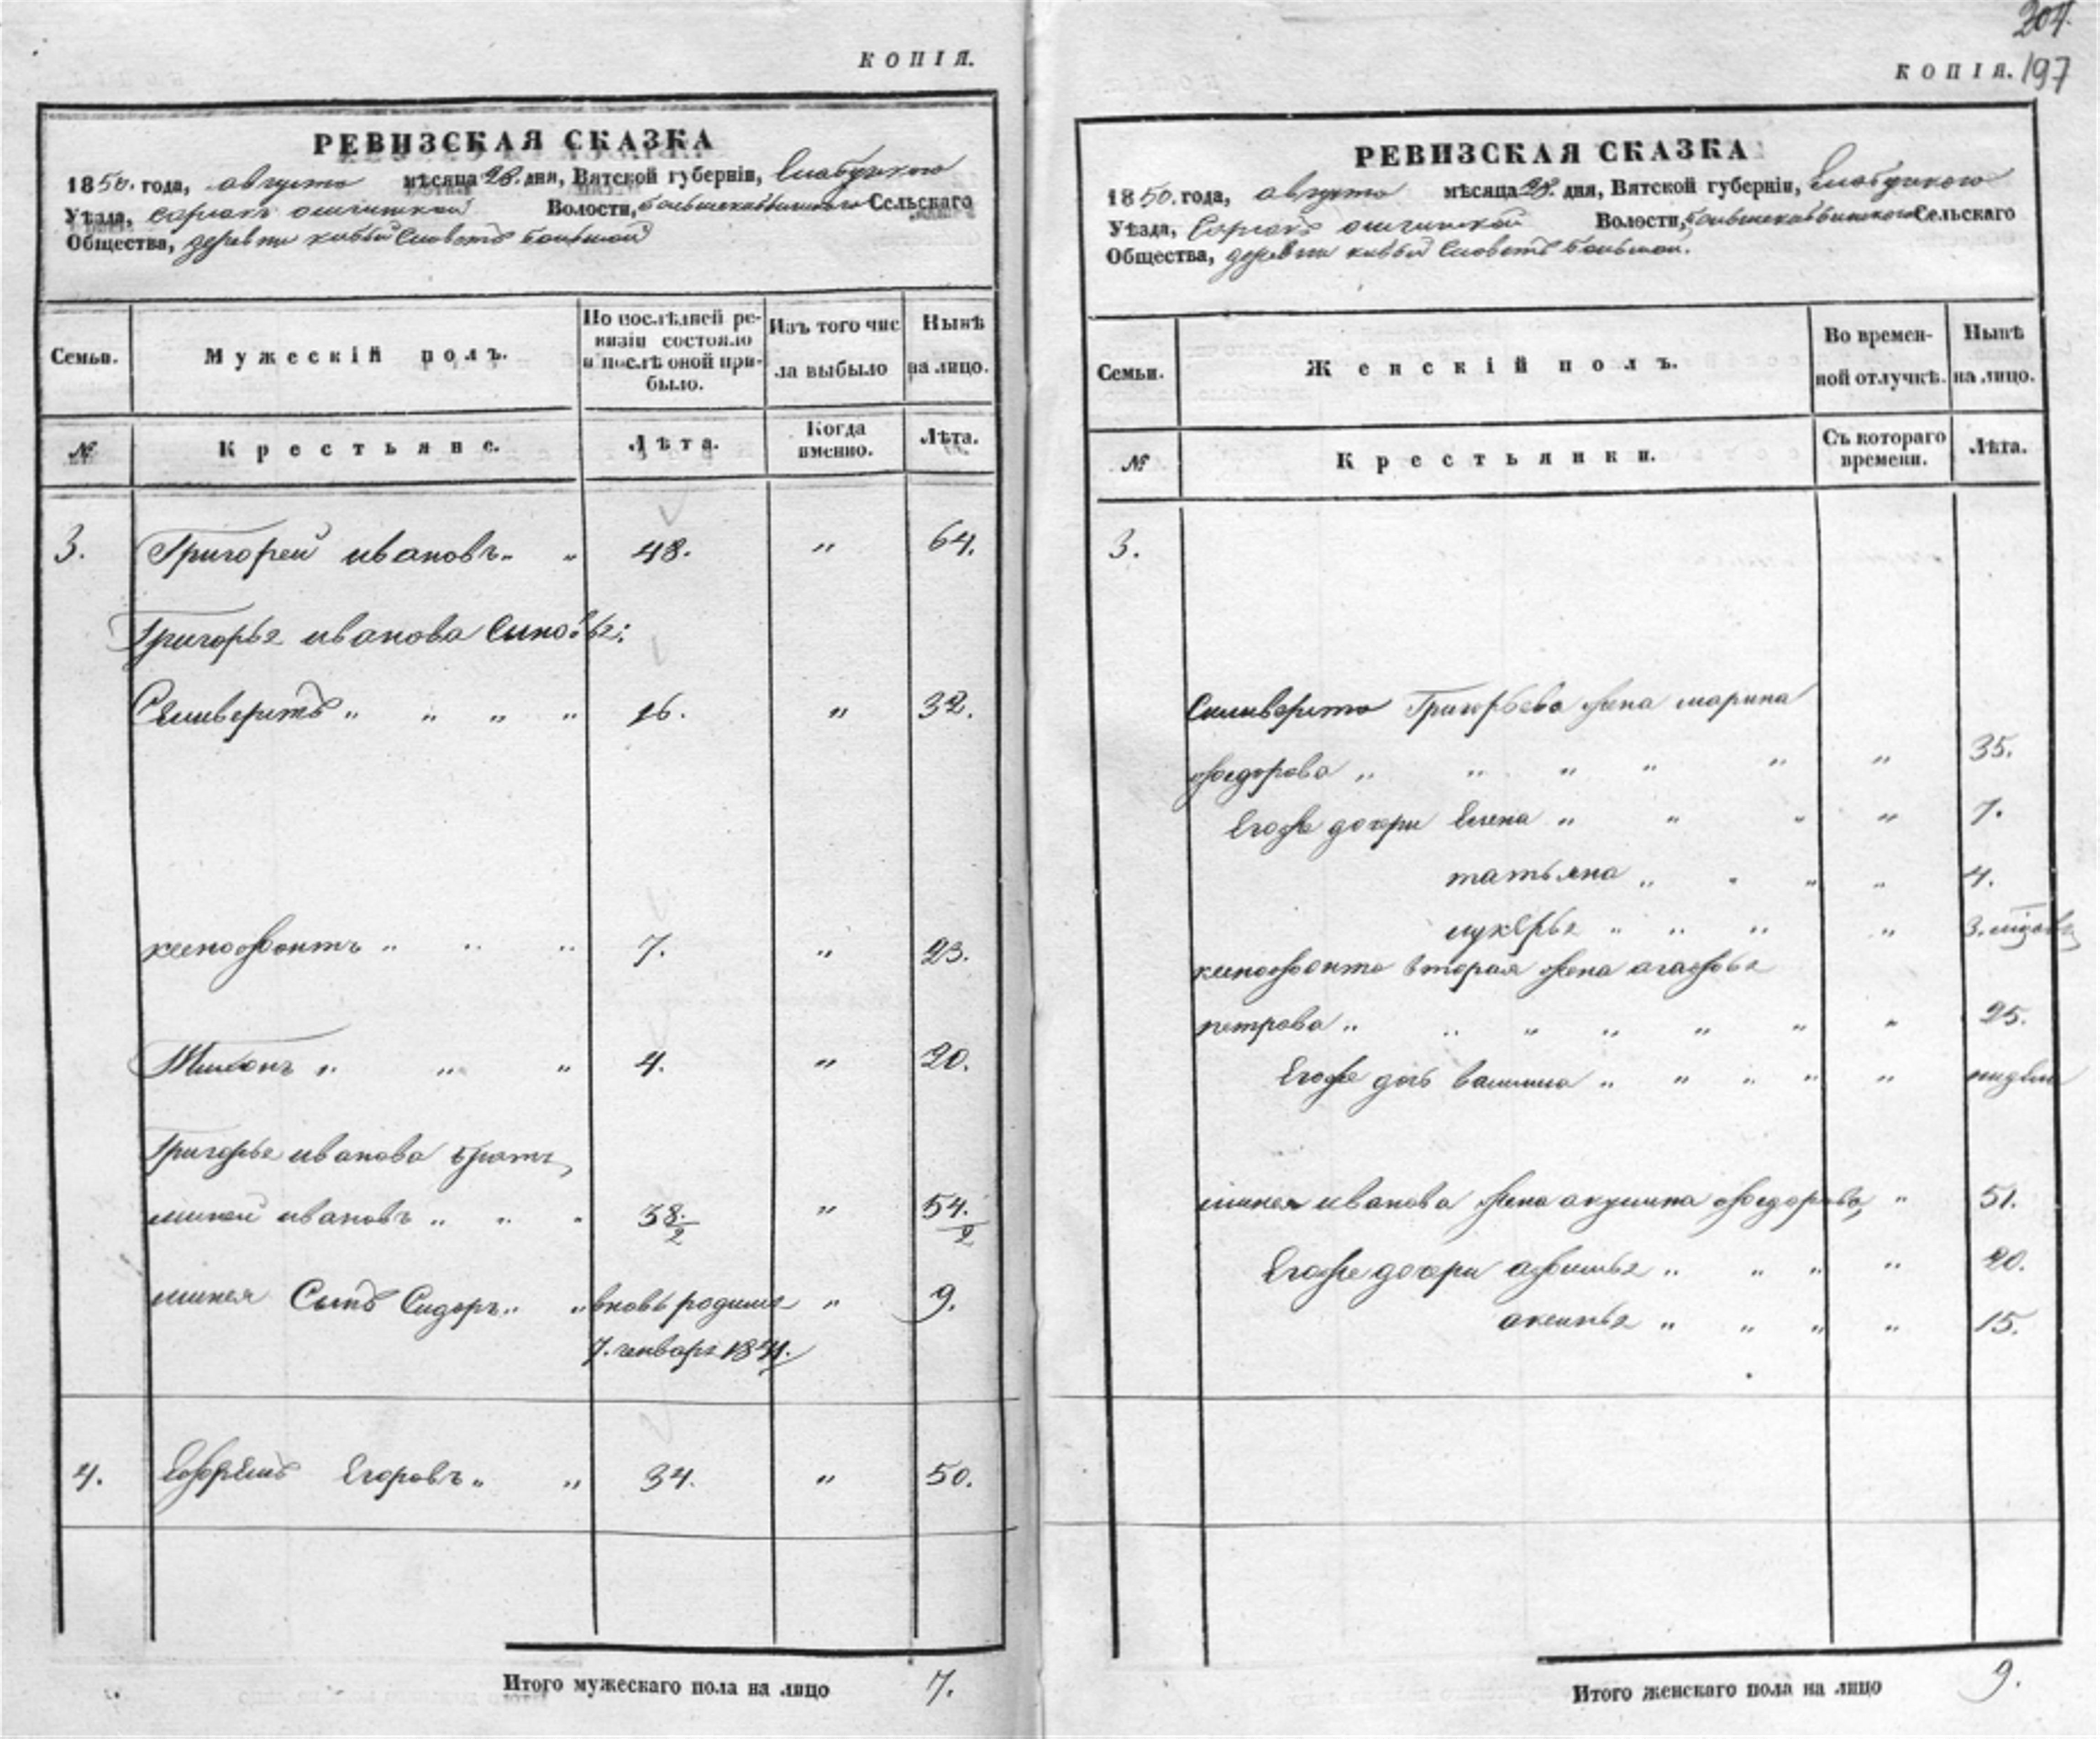 КОПІЯ.
РЕВИЗСКАЯ СКАЗКА
1850. года, августа мѣсяца 28. дня, Вятской губерніи, Елабужскаго
Уѣзда, Волости, Сельскаго
Общества, деревни большой
Семьи. Мужескій полъ. По послѣдней ревизіи состояло и послѣ оной прибыло. Изъ того числа выбыло Нынѣ на лицо.
№ Крестьяне. Лѣта. Когда именно. Лѣта.
3. Григорей ивановъ „ „ 48. „ 64.
Григорья иванова Сыновья:
Селиверстъ „ „ „ „ 16. „ 32.
ксенофонтъ „ „ „ 7. „ 23.
„ „ „ 4. „ 20.
Григорья иванова братъ
миней ивановъ „ „ „ 38./2 „ 54./2
минея Сынъ Сидоръ „ „ вновь родился „ 9.
7. генваря 1841.
4. Ефремъ Егоровъ „ „ 34. „ 50.
Итого мужескаго пола на лицо 7.
204.
КОПІЯ. 197
РЕВИЗСКАЯ СКАЗКА
1850. года, августа мѣсяца 28. дня, Вятской губерніи, Елабужскаго
Уѣзда, Волости, Сельскаго
Общества, деревни большой.
Семьи. Женскій полъ. Во временной отлучкѣ. Нынѣ на лицо.
№ Крестьянки. Съ котораго времени. Лѣта.
3.
Селиверста Григорьева жена марина
федорова „ „ „ „ „ „ 35.
Егоже дочери Елена „ „ „ „ 7.
татьяна „ „ „ „ 4.
лукерья „ „ „ „ 3.
ксенофонта вторая жена агафья
петрова „ „ „ „ „ „ „ 25.
Егоже дочь „ „ „ „ „
минея иванова жена акулина федорова „ 51.
Егоже дочери афимья „ „ „ „ 20.
аксинья „ „ „ „ 15.
Итого женскаго пола на лицо 9.